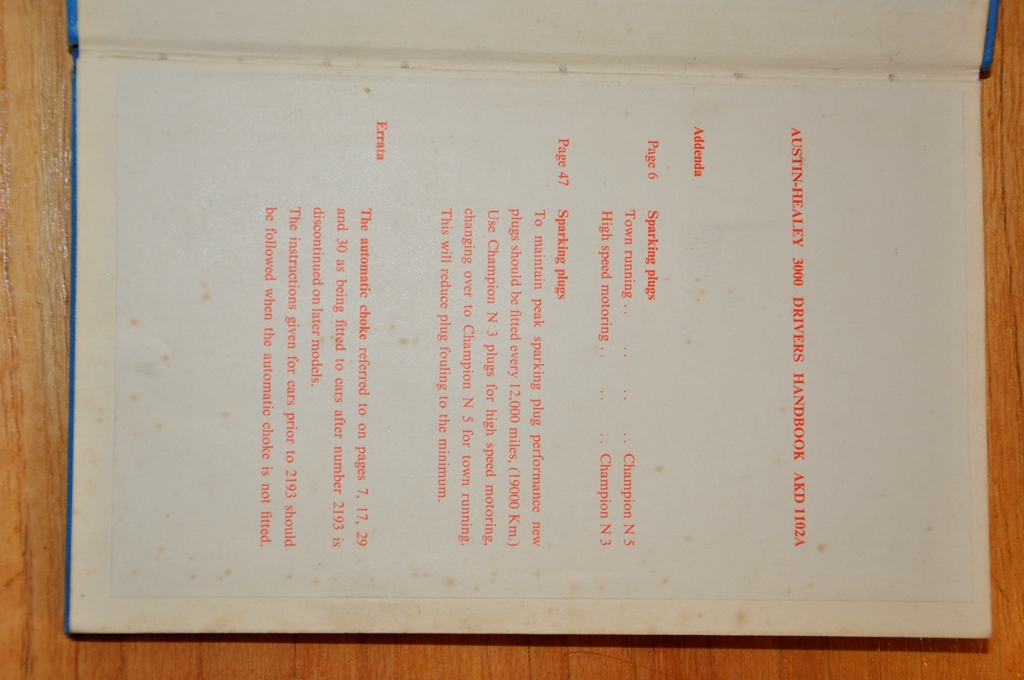 AUSTIN-HEALEY 3000 DRIVERS HANDBOOK AKD 1102A
Addenda
Page 6 Sparking plugs
Town running .. .. .. .. Champion N 5
High speed motoring .. .. .. Champion N 3
Page 47 Sparking plugs
To maintain peak sparking plug performance new
plugs should be fitted every 12,000 miles, (19000 Km.)
Use Champion N 3 plugs for high speed motoring,
changing over to Champion N 5 for town running.
This will reduce plug fouling to the minimum.
Errata
The automatic choke referred to on pages 7, 17, 29
and 30 as being fitted to cars after number 2193 is
discontinued on later models.
The instructions given for cars prior to 2193 should
be followed when the automatic choke is not fitted.